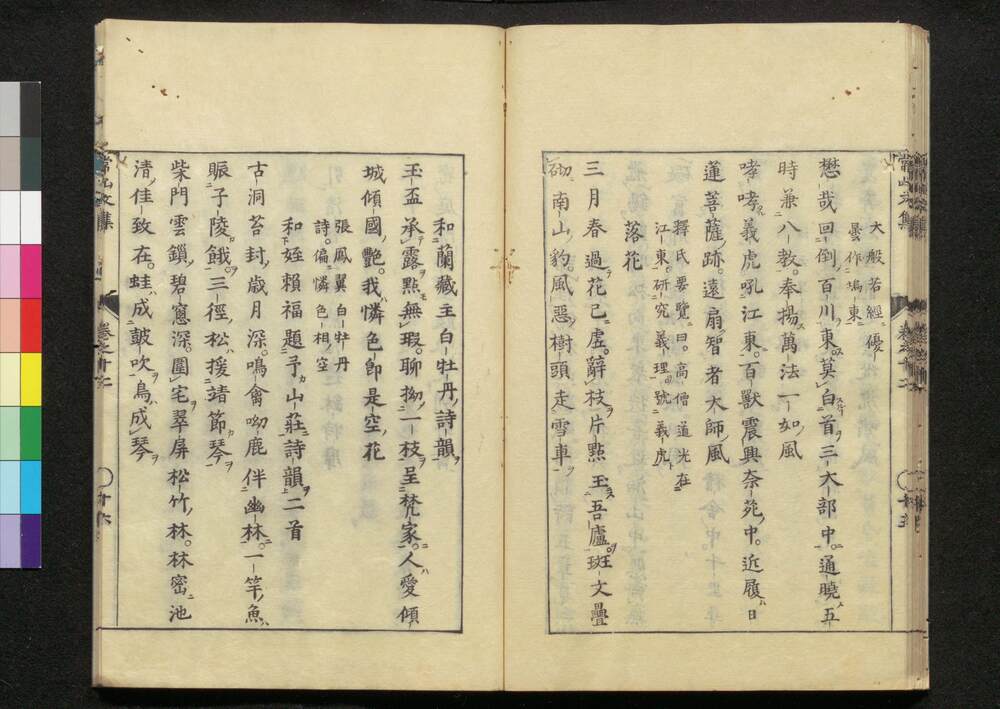 大般若經優
曇作塲東
懋哉回倒百川東莫白首三大部中通曉五
時兼八教奉揚萬法一如風
哮哮義虎吼江東百獸震興奈苑中近履日
蓮菩薩跡遠扇智者大師風
釋氏要覽曰高僧道光在
江東研究義理號義虎
落花
三月春過花已虛辭枝片點玉吾廬斑文疊
砌南山豹風惡樹頭走雪車
常山文集
卷之十二
十五
和蘭藏主白牡丹詩韻
玉盃承露點無瑕聊拗一枝呈梵家人愛傾
城傾國艷我憐色即是空花
張鳳翼白牡丹
詩偏憐色相空
和姪賴福題予山莊詩韻二首
古洞苔封歲月深鳴禽呦鹿伴幽林一竿魚
賑子陵餓三徑松援靖節琴
柴門雲鎖碧窻深圍宅翠屏松竹林林密池
清佳致在蛙成鼓吹鳥成琴
常山文集
卷之十二
十六